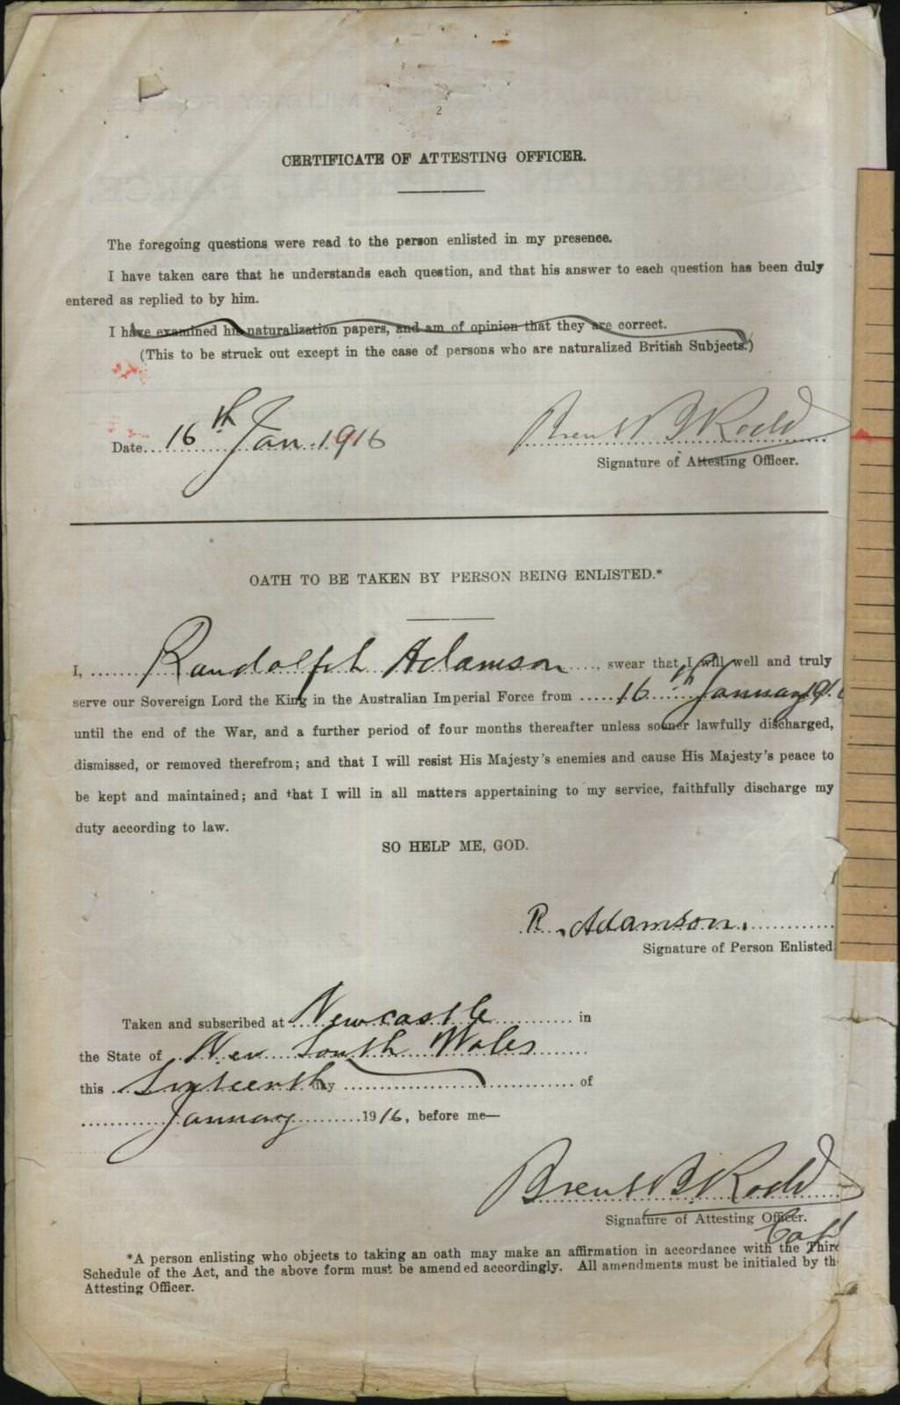 2
CERTIFICATE OF ATTESTING OFFICER.
The foregoing questions were read to the person enlisted in my presence.
I have taken care that he understands each question, and that his answer to each question has been duly
entered as replied to by him.
I have examined his naturalization papers, and am of opinion that they are correct.
(This to be struck out except in the case of persons who are naturalized British Subjects.)
Date 16th Jan 1916 Brent B Rodd
Signature of Attesting Officer.
OATH TO BE TAKEN BY PERSON BEING ENLISTED.*
I, Randolph Adamson, swear that I will well and truly
serve our Sovereign Lord the King in the Australian Imperial Force from 16th January 191
until the end of the War, and a further period of four months thereafter unless sooner lawfully discharged,
dismissed, or removed therefrom; and that I will resist His Majesty's enemies and cause His Majesty's peace to
be kept and maintained; and that I will in all matters appertaining to my service, faithfully discharge my
duty according to law.
SO HELP ME, GOD.
R. Adamson.
Signature of Person Enlisted
Taken and subscribed at Newcastle in
the State of New South Wales
this Sixteenth day of
January 1916, before me—
Brent B Rodd
Signature of Attesting Officer.
Capt
*A person enlisting who objects to taking an oath may make an affirmation in accordance with the Third
Schedule of the Act, and the above form must be amended accordingly. All amendments must be initialed by th
Attesting Officer.